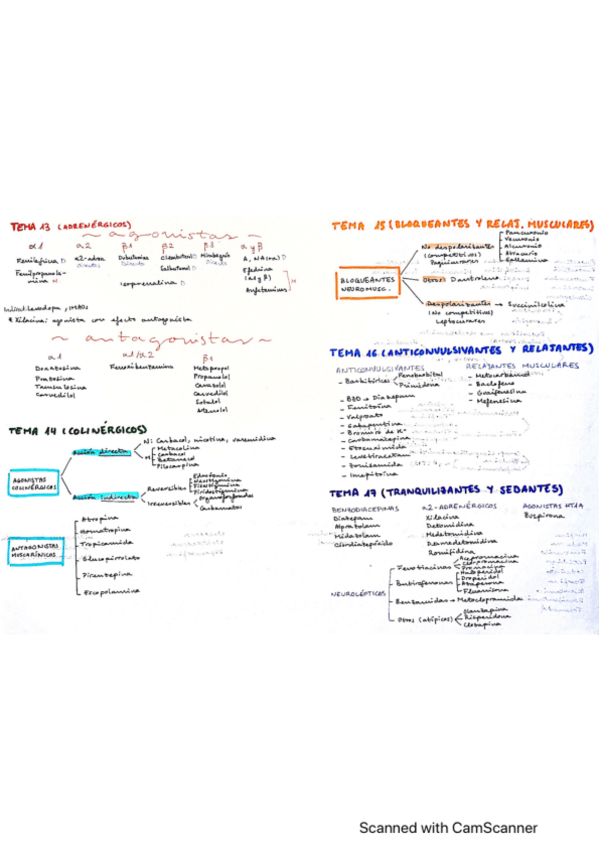 TEMA 13 (ADRENÉRGICOS)
~ agonistas ~
α1 α2 β1 β2 β3 α y β
Fenilefrina D α2-adren. Dobutamina Clenbuterol D Mirabegrón A, NA (α1) D
Directos Directo Salbutamol D Directo Efedrina
Fenilpropanolamina (α1 y β)
Isoprenalina D Anfetaminas
M
* Xilacina: agonista con efecto antagonista
~ antagonistas ~
α1 α1/α2 β1
Doxazosina Fenoxibenzamina Metoprolol
Prazosina Propanolol
Tamsulosina Carvedilol
Carvedilol Sotalol
Atenolol
TEMA 14 (COLINÉRGICOS)
AGONISTAS COLINÉRGICOS
Acción directa
N: Carbacol, nicotina, vareniclina
M
Metacolina
Carbacol
Betanecol
Pilocarpina
Acción indirecta
Reversibles
Edrofonio
Neostigmina
Fisostigmina
Piridostigmina
Irreversibles
Organofosforados
Carbamatos
ANTAGONISTAS MUSCARÍNICOS
Atropina
Homatropina
Tropicamida
Glucopirrolato
Pirenzepina
Escopolamina
TEMA 15 (BLOQUEANTES Y RELAJ. MUSCULARES)
BLOQUEANTES NEUROMUSC.
No despolarizantes
(competitivos)
Paquicurares
Pancuronio
Vecuronio
Alcuronio
Atracurio
Gallamina
Otros: Dantroleno
Despolarizantes → Succinilcolina
(No competitivos)
Leptocurares
TEMA 16 (ANTICONVULSIVANTES Y RELAJANTES)
ANTICONVULSIVANTES
- Barbitúricos
Fenobarbital
Primidona
- BZD → Diazepam
- Fenitoína
- Valproato
- Gabapentina
- Bromuro de K+
- Carbamazepina
- Etosuximida
- Levetiracetam
- Zonisamida
- Imepitoína
RELAJANTES MUSCULARES
- Metocarbamol
- Baclofeno
- Guaifenesina
- Mefenesina
TEMA 17 (TRANQUILIZANTES Y SEDANTES)
BENZODIACEPINAS α2-ADRENÉRGICOS AGONISTAS HT1A
Diazepam Xilacina Buspirona
Alprazolam Detomidina
Midazolam Medetomidina
Clordiazepóxido Dexmedetomidina
Romifidina
NEUROLÉPTICOS
- Fenotiacinas
Acepromacina
Clorpromacina
Promacina
- Butirofenonas
Haloperidol
Droperidol
Azaperona
Fluanisona
- Benzamidas → Metoclopramida
- Otros (atípicos)
Olanzapina
Risperidona
Clozapina
Scanned with CamScanner